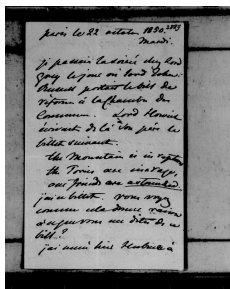 paris le 22 octobre 1830.
Mardi.
je passais la soirée chez Lord
Grey le jour où Lord John
Russell portait le bill de
réforme à la Chambre des
Communes. Lord Howick
écrivait de là à son père le
billet suivant.
the Mountain is in
the Tories are
our friends are astonished
j'ai le billet. vous voyez
comme cela donne raison
à ce que vous me dites de ce
bill.
j'ai mené hier